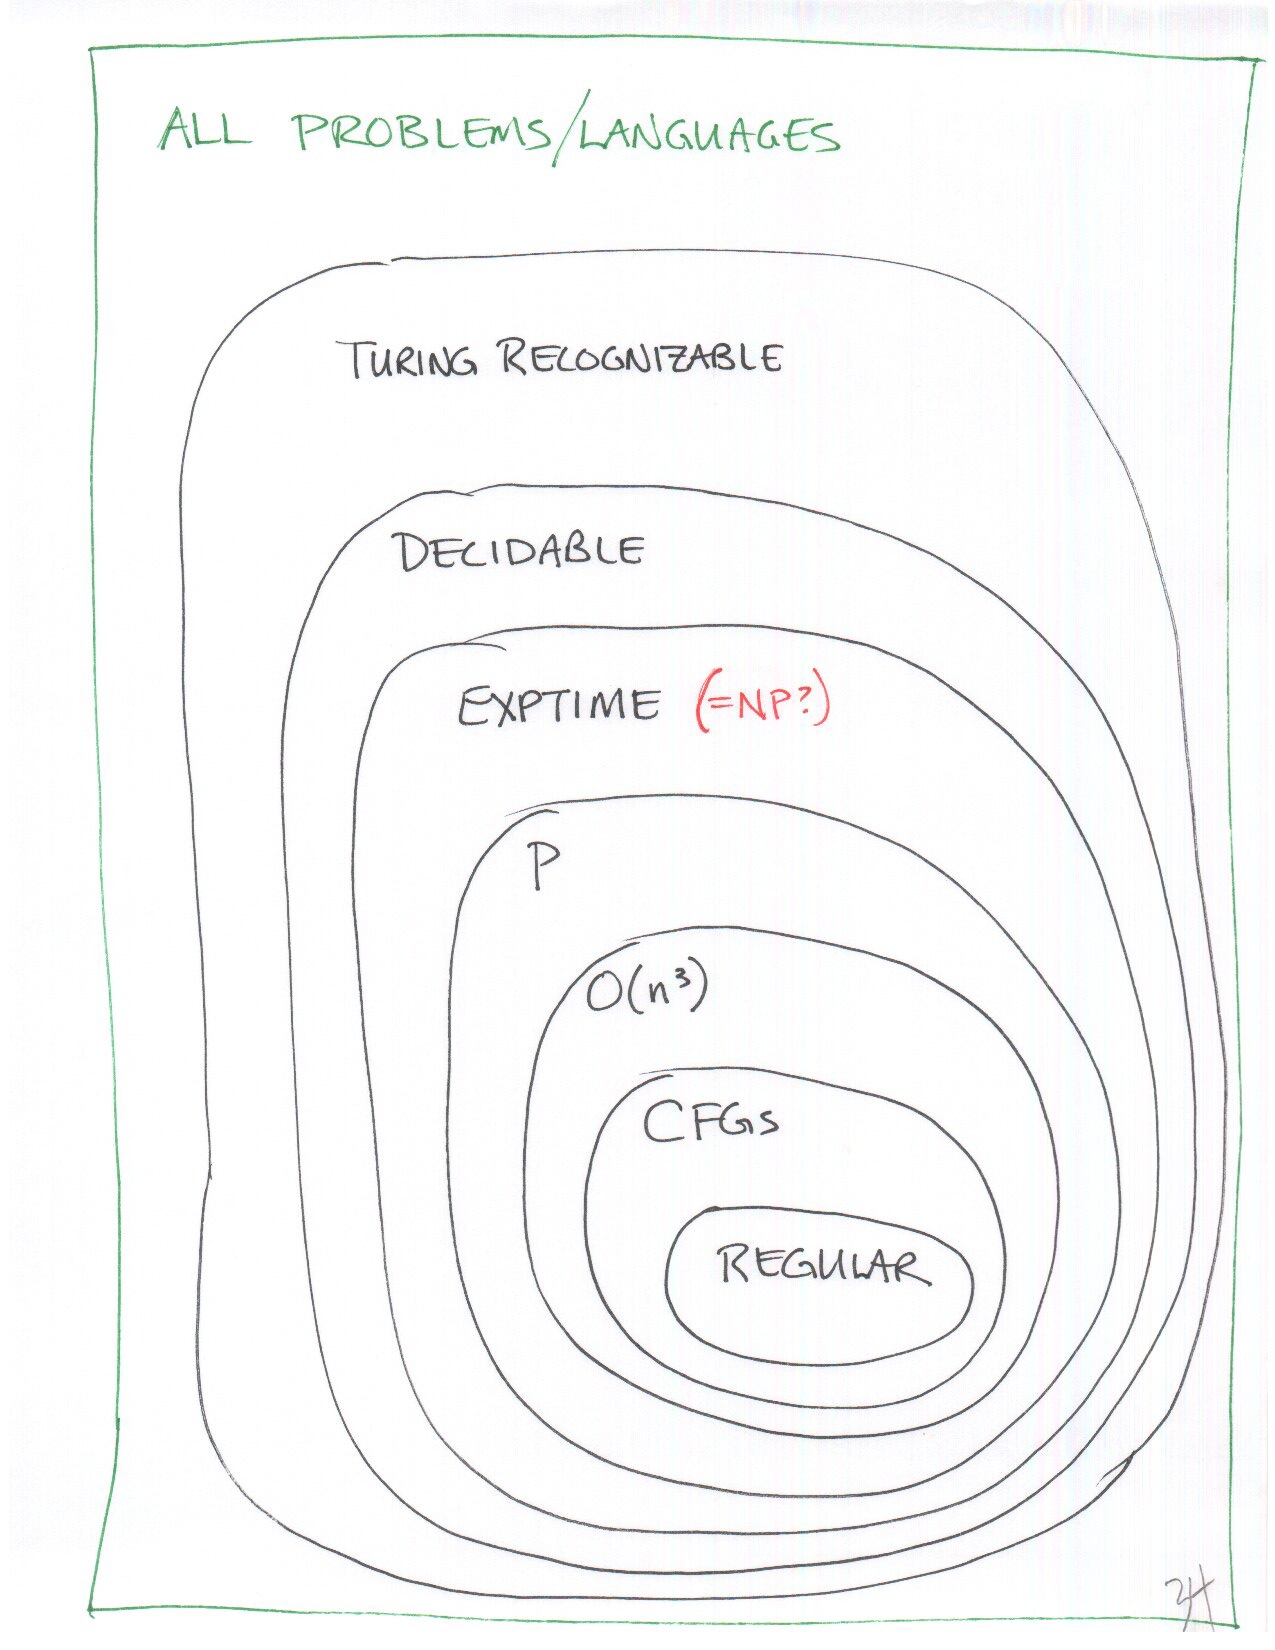 ALL PROBLEMS/LANGUAGES
TURING RECOGNIZABLE
DECIDABLE
EXPTIME (=NP?)
P
O(n³)
CFGs
REGULAR
34